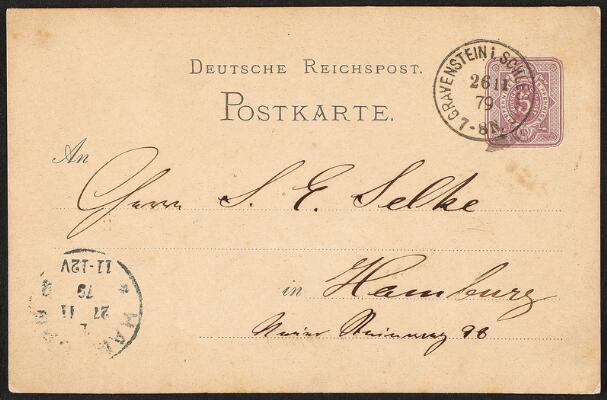 DEUTSCHE REICHSPOST.
POSTKARTE.
GRAVENSTEIN i. SCHL
26 11
79
7-8N.
5
An
Herrn S. E. Selke
in Hamburg
Neuer Steinweg 98
HAM
27 11
79
11-12V